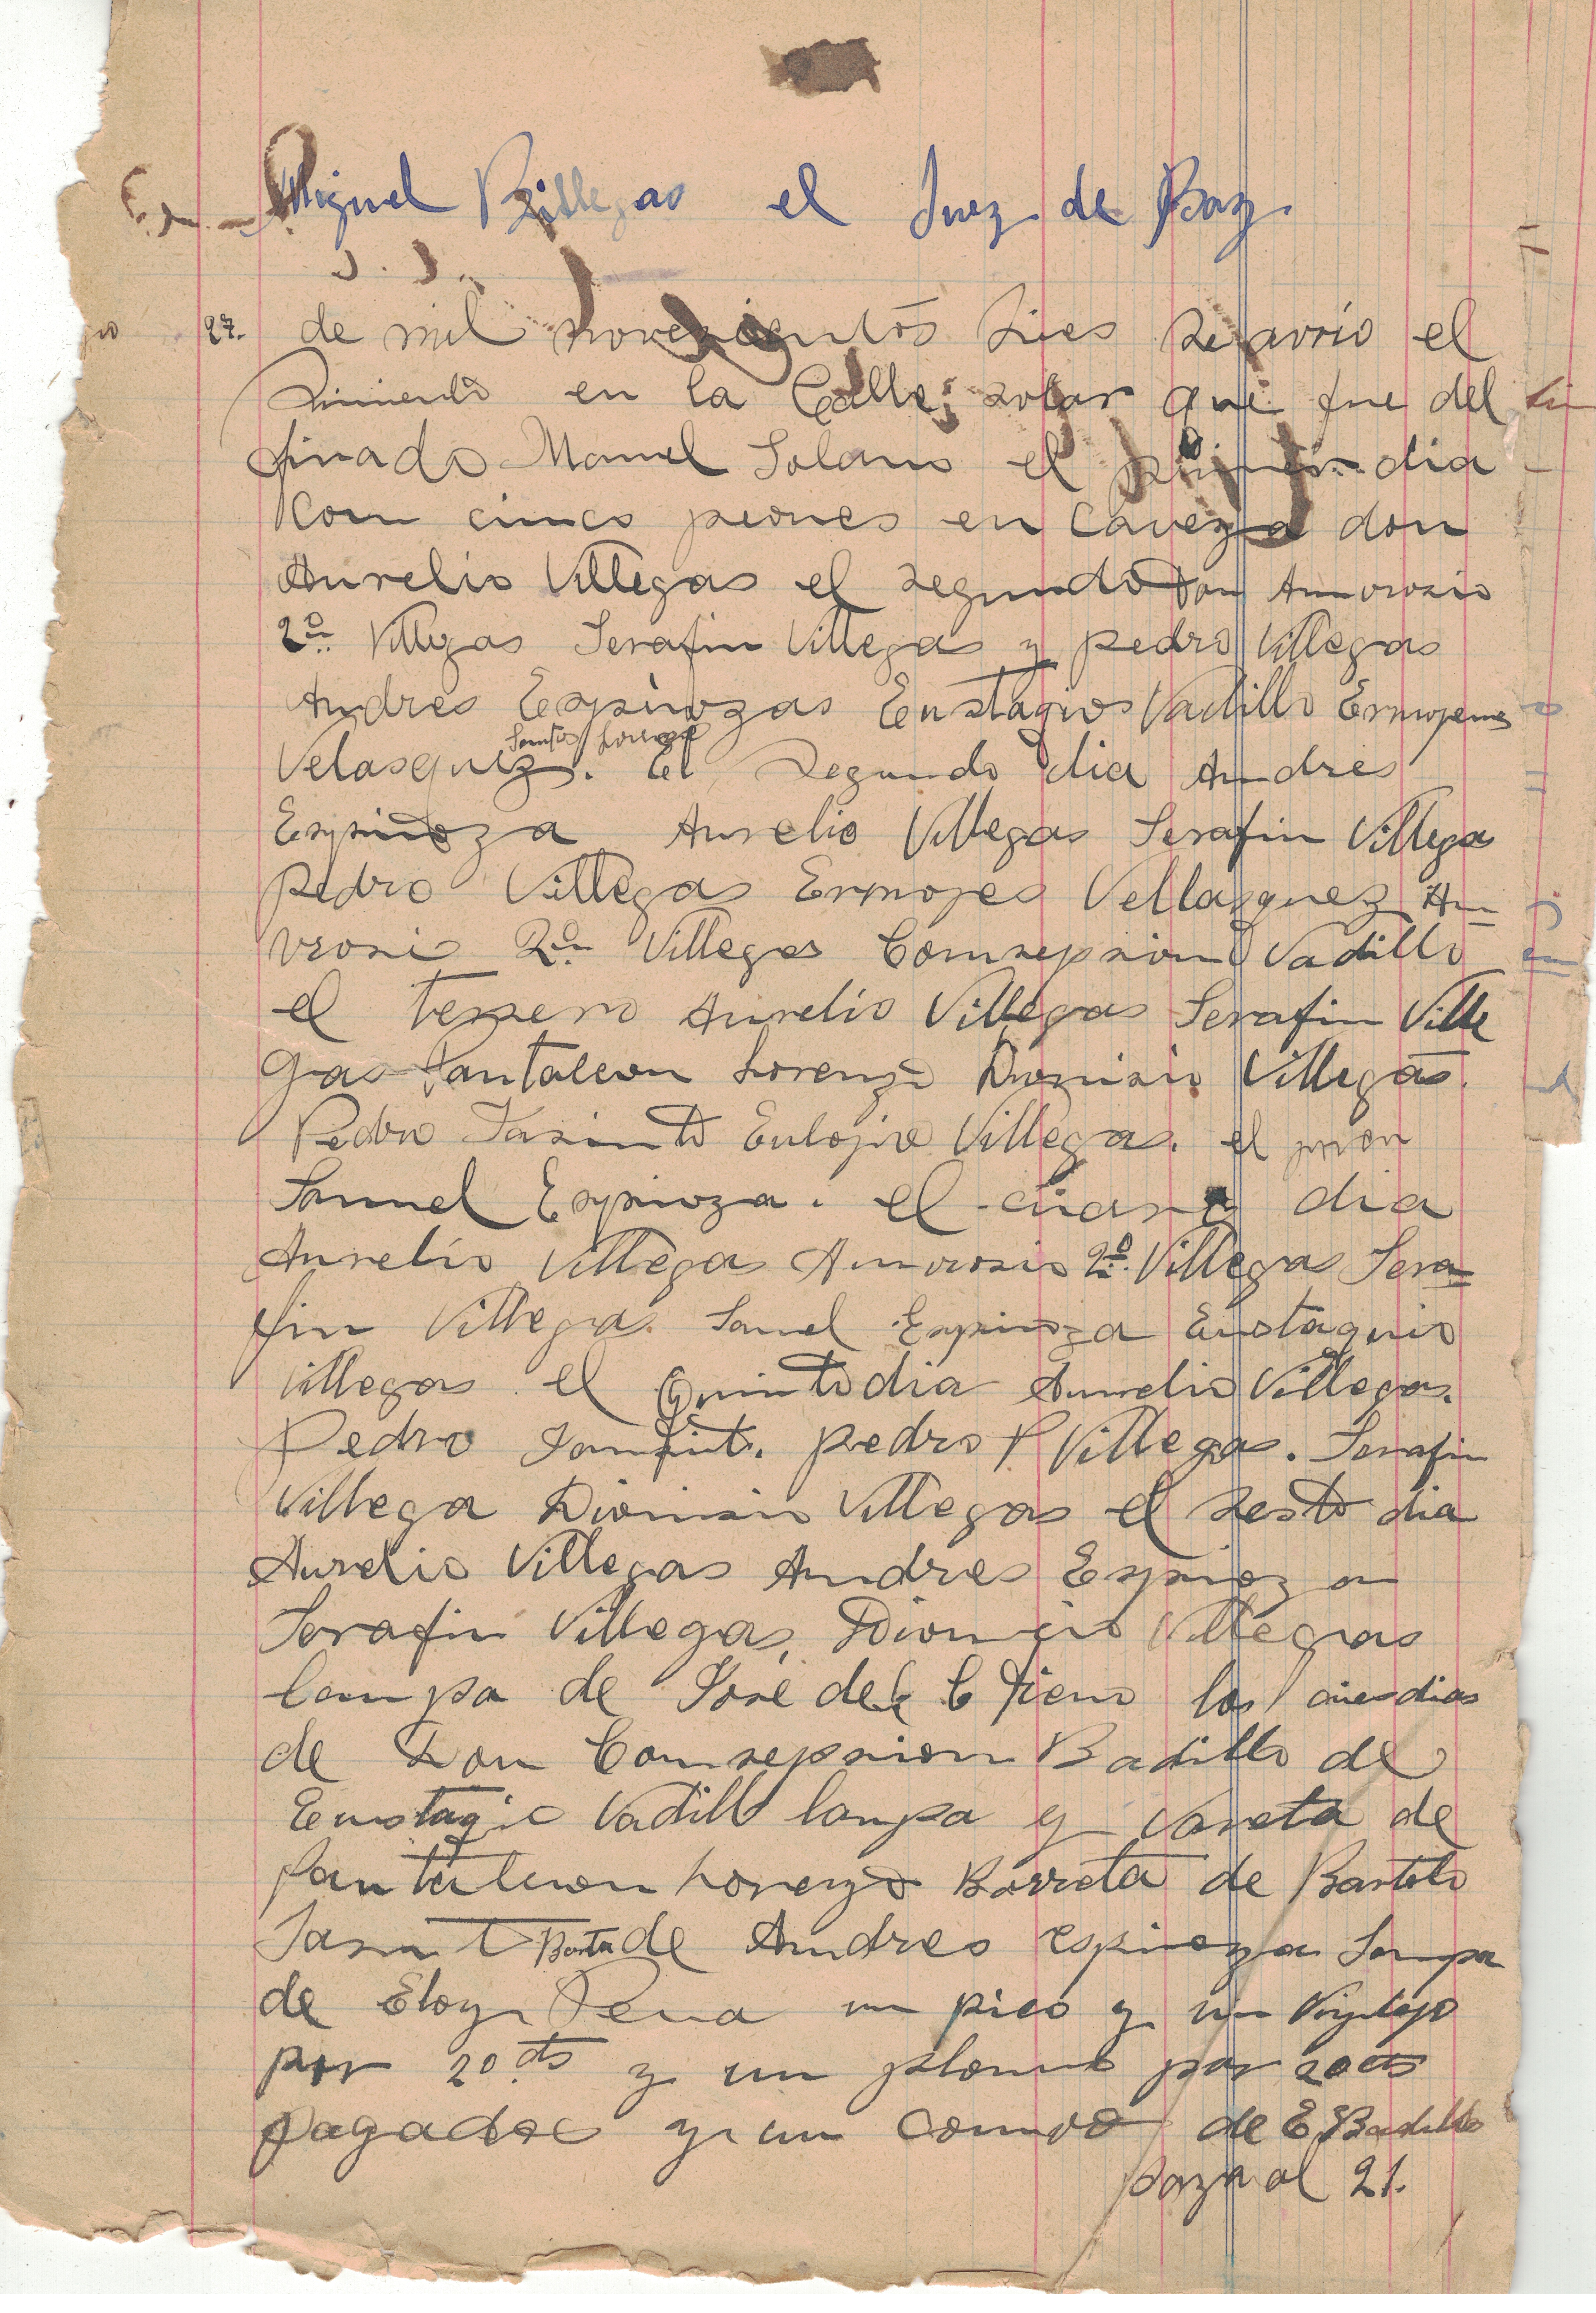 Miguel Billegas el Juez de Baz.
27. de mil novezientos Dies se avrio el
Simiento en la Calle; solar que fue del
finado Manuel Solano el primer dia
Con cinco peones en Caveza don
Aurelio Villegas el segundo Don Amvrosio
2º Villegas Serafin Villegas y pedro Villegas
Andres Espinozas Eustagio Vadillo Ermojenes
Santos Lorenzo
Velasquez. El Segundo dia Andres
Espinoza Aurelio Villegas Serafin Villega
Pedro Villegas Ermojes Vellazquez Am=
vrosi 2º Villegas Consepsion Vadillo
el terсero Aurelio Villegas Serafin Ville
gas Pantaleon Lorenzo Dionisio Villegas.
Pedro Jasinto Eulojio Villegas. el peon
Samuel Espinoza. el cuarto dia
Aurelio Villegas Amvrosio 2º Villegas Sera=
fin Villegas Samel Espinoza Eustaquio
Villegas el Quinto dia Aurelio Villegas.
Pedro pedro P Villegas. Serafin
Villega Dionisio Villegas el sesto dia
Aurelio Villegas Andres Espinoza
Serafin Villegas, Dionicio Villegas
lampa de José del C los dias
de Don Consepsion Badillo de
Eustagio Vadillo lampa y Varreta de
Pantaleon Lorenzo Barreta de Bartolo
Jasint Barta de Andres espinoza Lampa
de Eloy Pena un pico y un
por 20 cts y un plomo por 20 cts
pagados y un de E Badillo
pasa al 21.